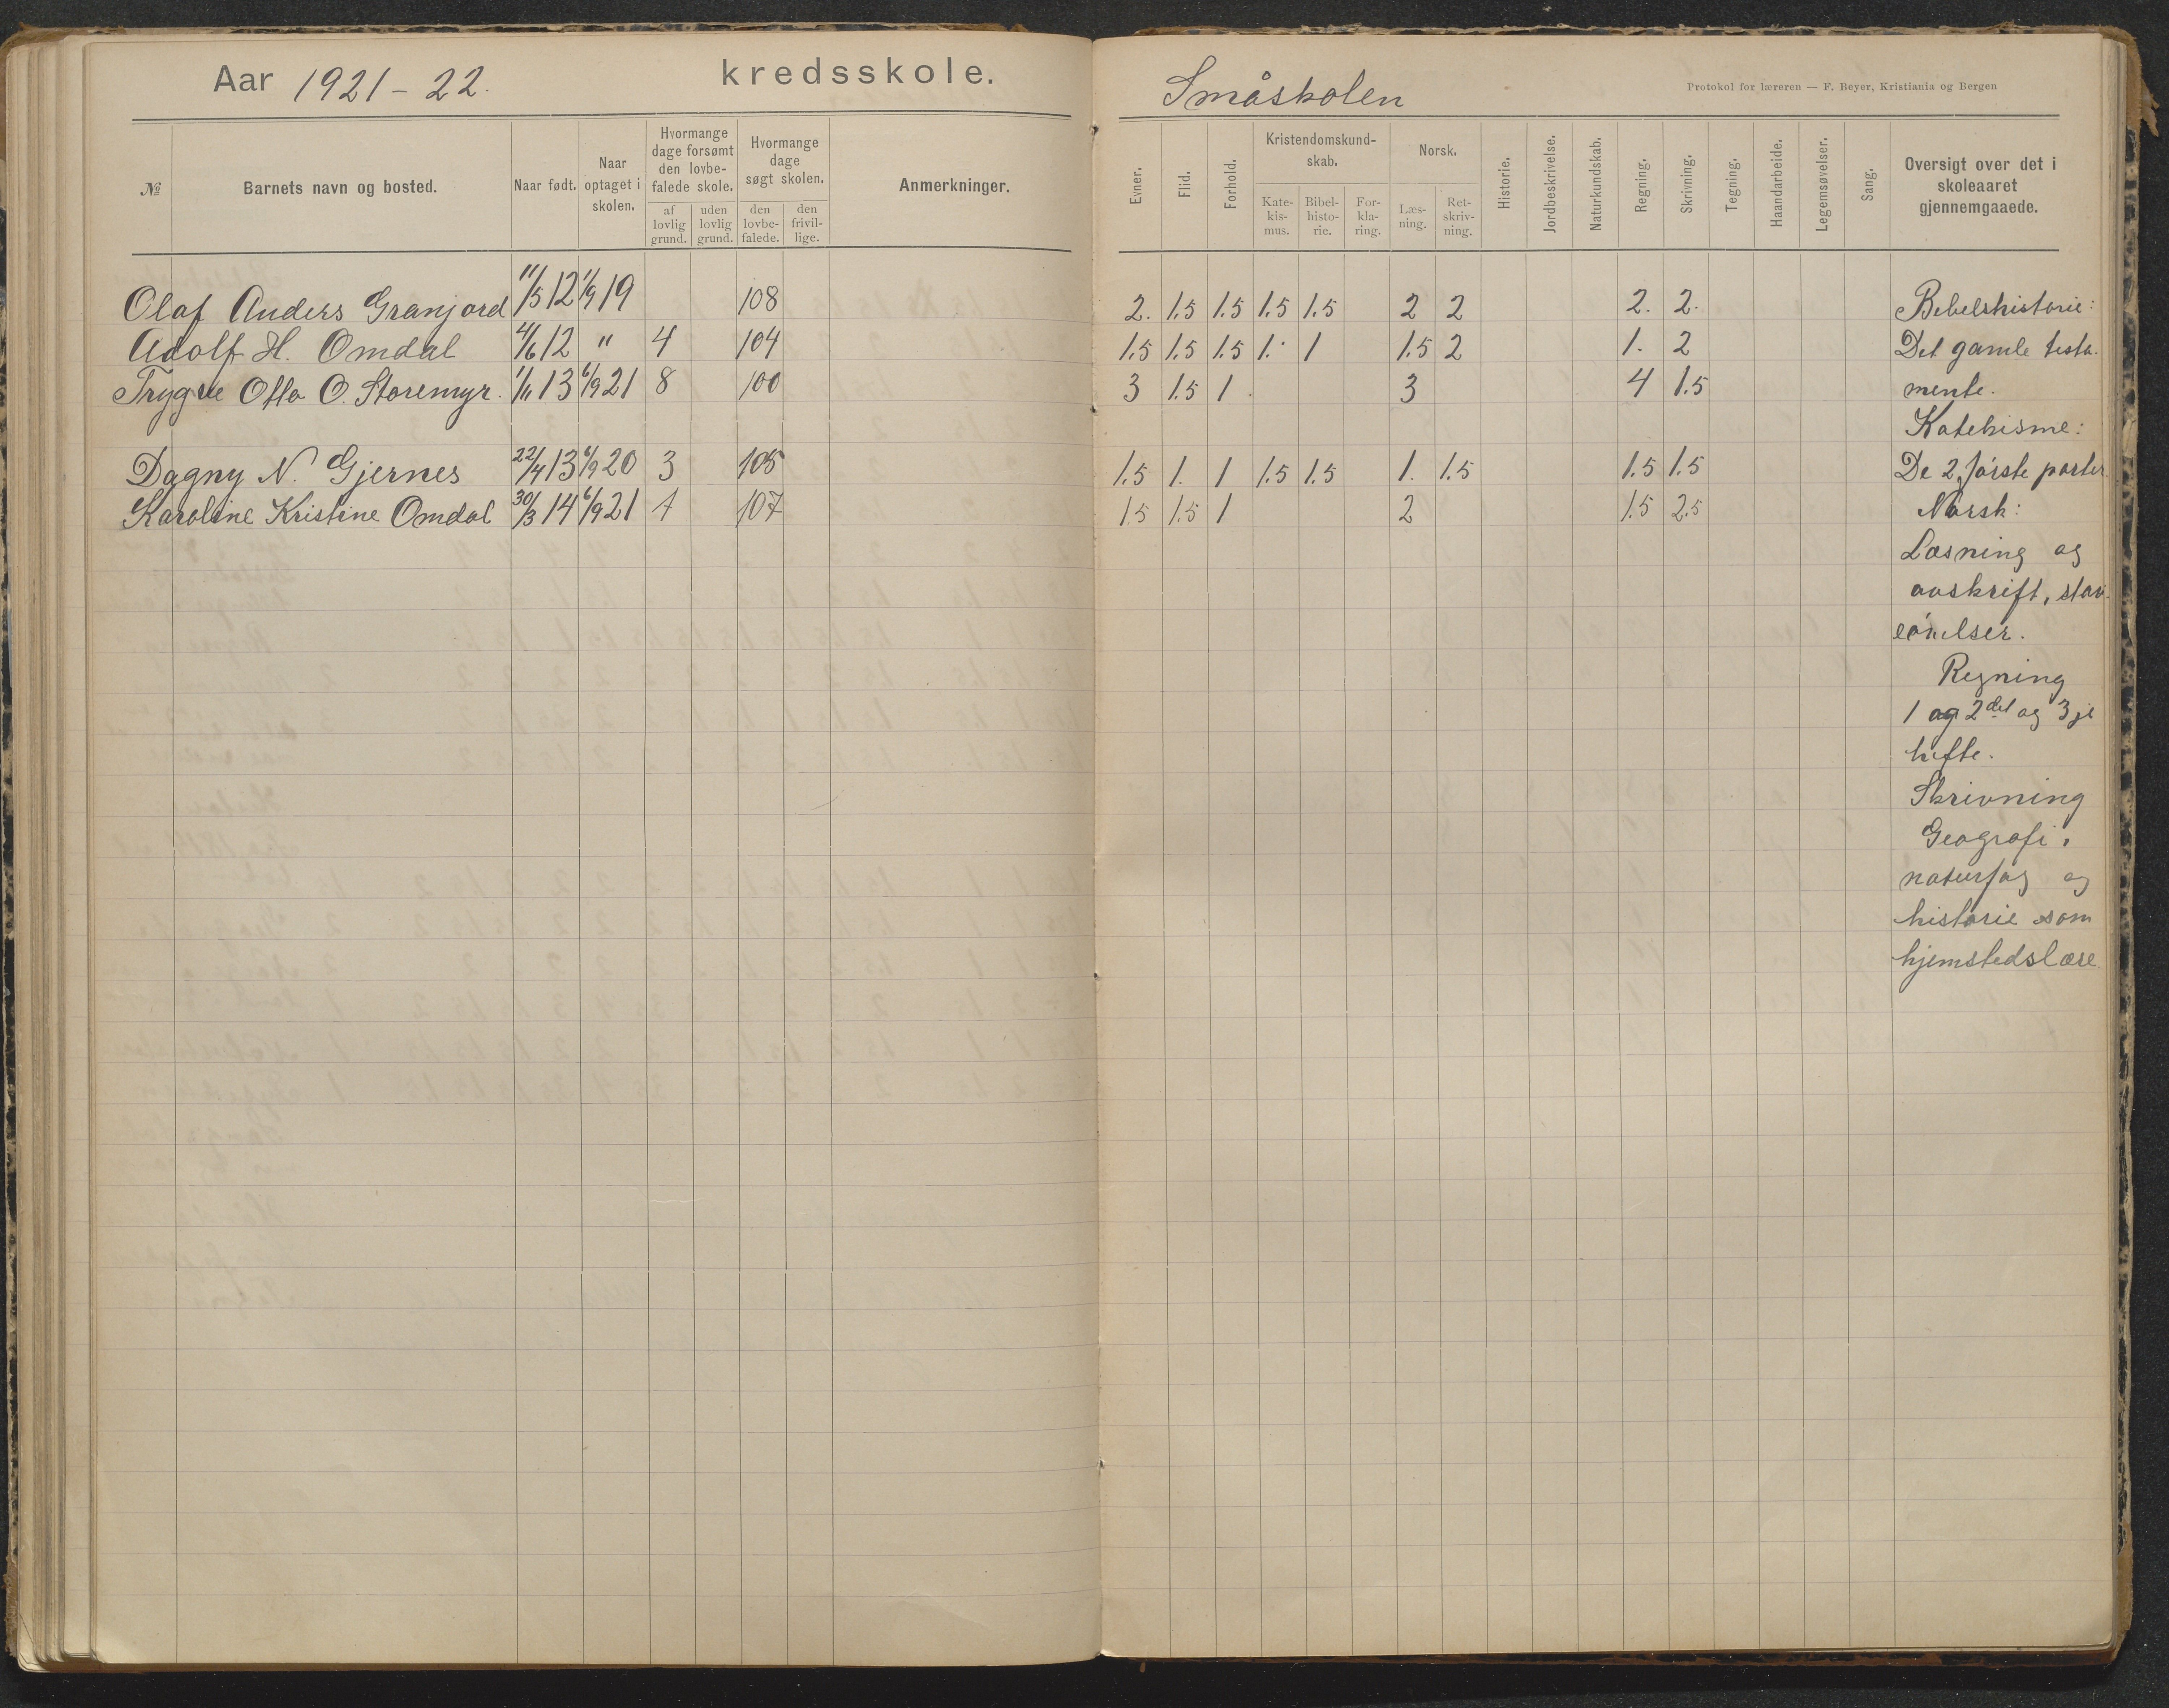 Aar 1921-22. kredsskole.
№ Barnets navn og bosted. Naar født. Naar optaget i skolen. Hvormange dage forsømt den lovbefalede skole. af lovlig grund. uden lovlig grund. Hvormange dage søgt skolen. den lovbefalede. den frivillige. Anmerkninger.
Olaf Anders Granjord 11/5 12 1/9 19 108
Adolf H. Omdal 4/6 12 " 4 104
Trygve Otto O. Storemyr. 1/11 13 6/9 21 8 100
Dagny N. Gjernes 22/4 13 6/9 20 3 105
Karoline Kristine Omdal 30/3 14 6/9 21 1 107
Småskolen
Protokol for læreren — F. Beyer, Kristiania og Bergen
Evner. Flid. Forhold. Kristendomskundskab. Katekismus. Bibelhistorie. Forklaring. Norsk. Læsning. Retskrivning. Historie. Jordbeskrivelse. Naturkundskab. Regning. Skrivning. Tegning. Haandarbeide. Legemsøvelser. Sang. Oversigt over det i skoleaaret gjennemgaaede.
2. 1.5 1.5 1.5 1.5 2 2 2. 2. Bibelshistorie:
1.5 1.5 1.5 1. 1 1.5 2 1. 2 Det gamle testa-
3 1.5 1 3 4 1.5 mente.
Katekisme:
1.5 1. 1 1.5 1.5 1. 1.5 1.5 1.5 De 2 første parter
1.5 1.5 1 2 1.5 2.5 Norsk:
Læsning og
avskrift, stav-
eønelser.
Regning
1 og 2det og 3je
hefte.
Skrivning
Geografi,
naturfag og
historie som
hjemstedslære